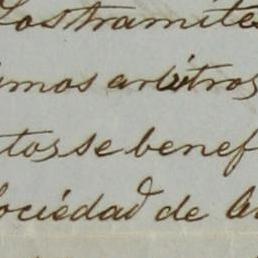 Los tramites
imos arbitros
tos se benef
ociedad de